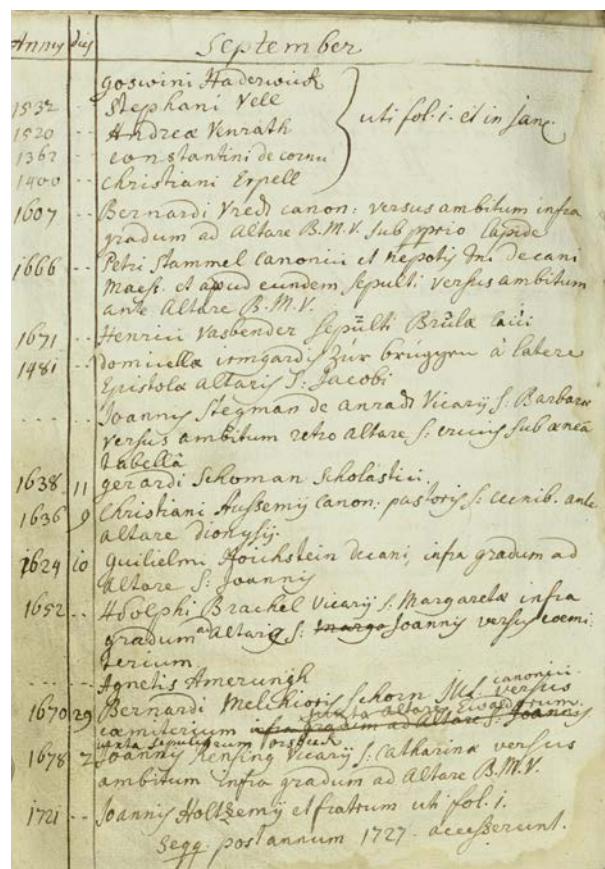 Annus dies September
Goswini Haderwick
1532 -- Stephani Vell
1520 -- Andreæ Venrath } uti fol. 1. et in Janr.
1362 -- Constantini de cornu
1400 -- Christiani Erpell
1607 -- Bernardi Vredt canon: versus ambitum infra
gradum ad Altare B.M.V. sub pprio lapide
1666 -- Petri Stammel Canonici et Nepotis Dni decani
Maess. et apud eundem sepulti versus ambitum
ante Altare B.M.V.
1671 -- Henrici Vasbender sepulti Brülæ laici
1481 -- domicellæ irmgardis zur brüggen à latere
Epistolæ altaris S: Jacobi
---- -- Joannis Stegman de anradt Vicarij S: Barbaræ
versus ambitum retro Altare S: crucis sub æneâ
tabellâ
1638 11 gerardi Schoman Scholastici.
1636 9 Christiani Hussemij Canon: pastoris S: ante
altare dionysij.
1624 10 Guilielmi Hoichstein decani, infra gradum ad
altare S: Joannis
1652 -- Adolphi Brachel Vicarij S: Margaretæ infra
gradum ad Altaris S: Marga Joannis versus coemi
terium
---- -- Agnetis Amerungh
canonici
1670 29 Bernardi Melchioris Schorn versus
juxta altare Ewaldorum
cæmiterium infra gradum ad Altare S: Joannis
juxta sepulchrum
1678 2 Joannis Kensing Vicarij S: Catharinæ versus
ambitum infra gradum ad Altare B.M.V.
1721 -- Joannis Holtzemij et fratrum uti fol. 1.
Seqq: post annum 1727. accesserunt.